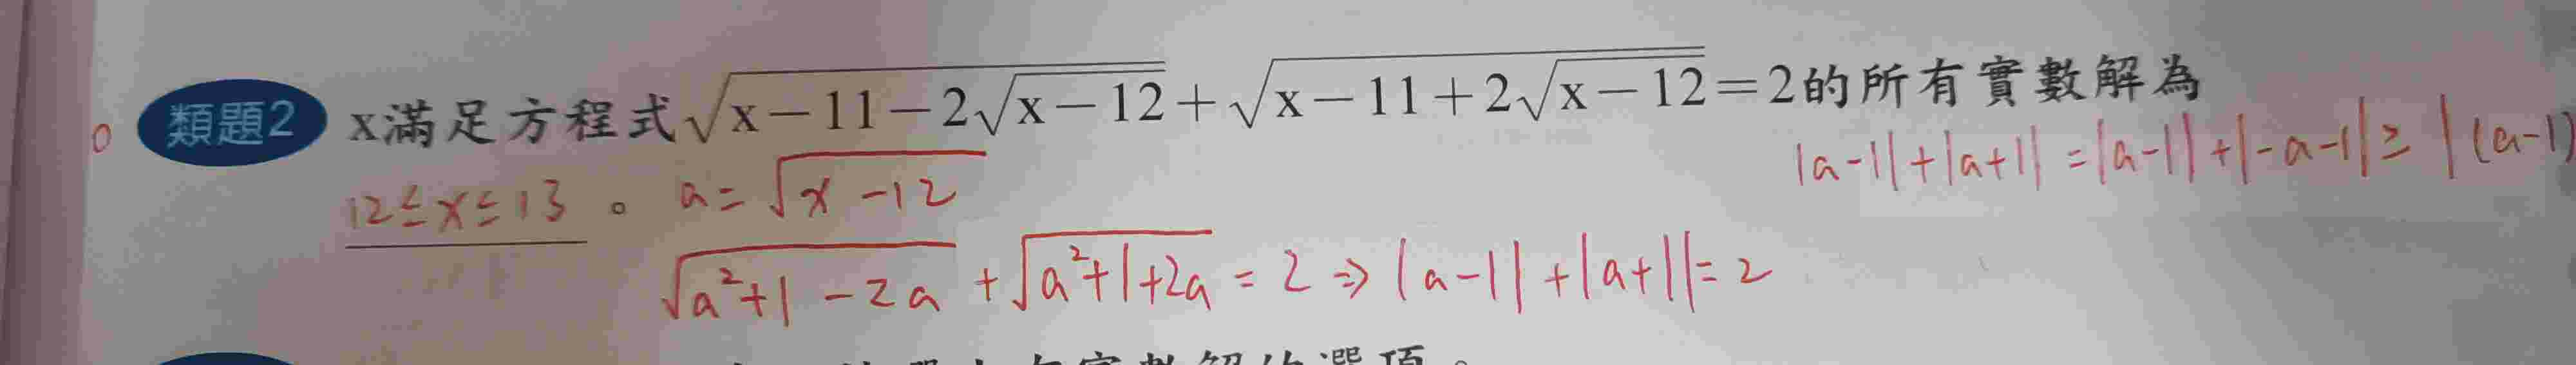 類題2 x滿足方程式√(x-11-2√(x-12))+√(x-11+2√(x-12))=2的所有實數解為
|a-1|+|a+1|=|a-1|+|-a-1|≥|(a-1)
12≤x≤13 。 a=√(x-12)
√(a²+1-2a)+√(a²+1+2a)=2⇒|a-1|+|a+1|=2